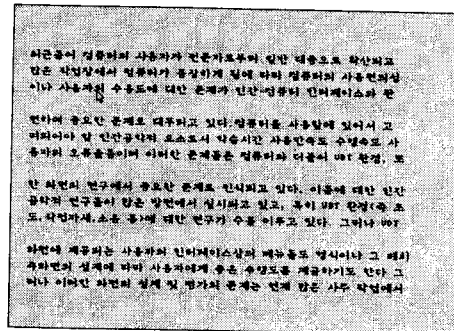 최근들어 컴퓨터의 사용자가 전문가로부터 일반 대중으로 확산되고
많은 작업장에서 컴퓨터가 등장하게 됨에 따라 컴퓨터의 사용편의성
이나 사용자의 수용도에 대한 문제가 인간-컴퓨터 인터페이스와 관
련하여 중요한 문제로 대두되고 있다. 컴퓨터를 사용함에 있어서 고
려되어야 할 인간공학적 요소로서 학습시간 사용만족도 수행속도 사
용자의 오류율등이며 이러한 문제들은 컴퓨터와 더불어 VDT 환경, 또
한 화면의 연구에서 중요한 문제로 인식되고 있다. 이들에 대한 인간
공학적 연구들이 많은 방면에서 실시되고 있고, 특히 VDT 환경(즉 조
도,작업자세,소음 등)에 대한 연구가 주를 이루고 있다. 그러나 VDT
화면에 제공되는 사용자의 인터페이스상의 메뉴들도 형식이나 그 배치
측면의 설계에 따라 사용자에게 좋은 수행도를 제공하기도 한다 그
러나 이러한 화면의 설계 및 평가의 문제는 현재 많은 사무 작업에서